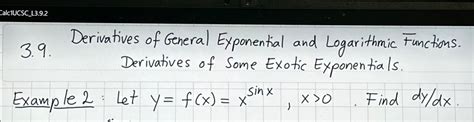 Calc1UCSC_L3.9.2
3.9. Derivatives of General Exponential and Logarithmic Functions.
Derivatives of Some Exotic Exponentials.
Example 2 : Let y = f(x) = x^sin x , x>0 . Find dy/dx .